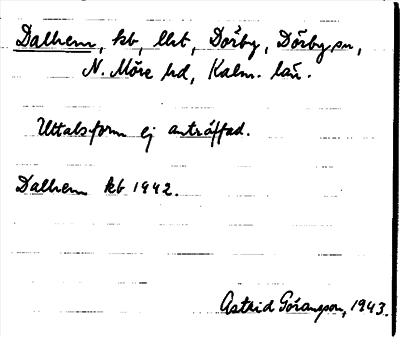 Dalhem, kb, lht, Dörby, Dörby sn,
N. Möre hd, Kalm. län.
Uttalsform ej anträffad.
Dalhem kb 1942.
Astrid Göransson, 1943.